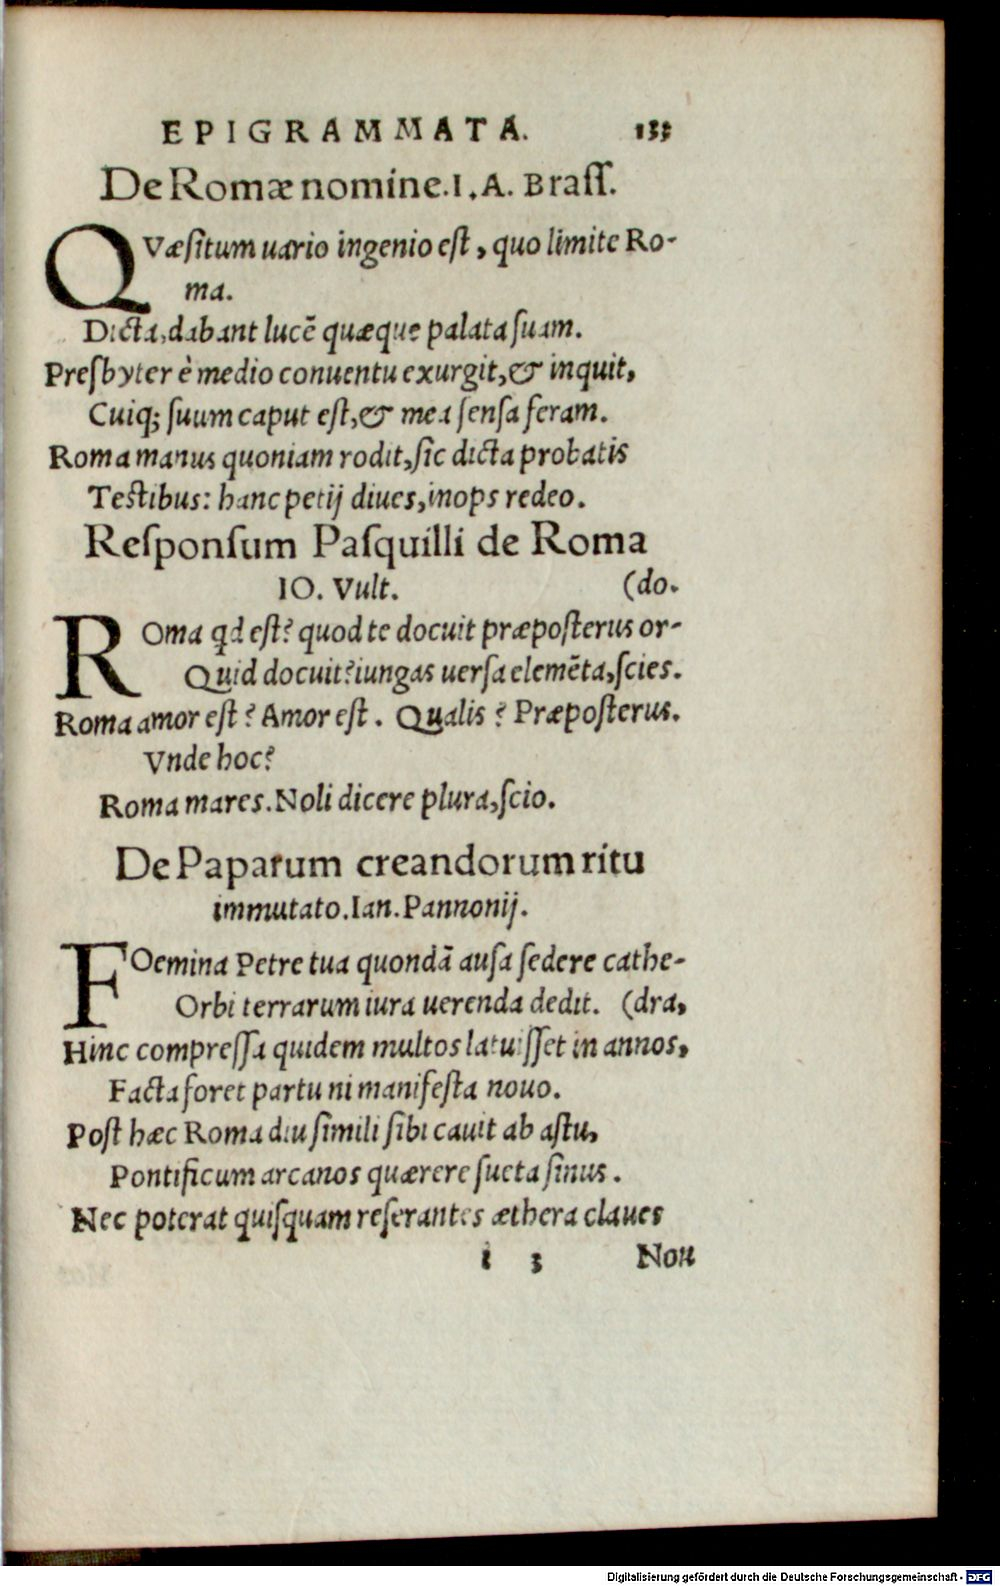 EPIGRAMMATA. 133
De Romæ nomine. I. A. Braſſ.
QVæſitum uario ingenio est, quo limite Ro-
ma.
Dicta, dabant lucē quæque palata ſuam.
Preſbyter è medio conuentu exurgit, & inquit,
Cuiq; ſuum caput eſt, & mea ſenſa feram.
Roma manus quoniam rodit, ſic dicta probatis
Testibus: hanc petij diues, inops redeo.
Reſponſum Paſquilli de Roma
IO. Vult. (do.
ROma qd eſt? quod te docuit præpoſterus or-
Quid docuit? iungas uerſa elemēta, ſcies.
Roma amor eſt? Amor eſt. Qualis? Præpoſterus.
Vnde hoc?
Roma mares. Noli dicere plura, ſcio.
De Paparum creandorum ritu
immutato. Ian. Pannonij.
FOemina Petre tua quondā auſa ſedere cathe-
Orbi terrarum iura uerenda dedit. (dra,
Hinc compreſſa quidem multos latuiſſet in annos,
Facta foret partu ni manifeſta nouo.
Poſt hæc Roma diu ſimili ſibi cauit ab aſtu,
Pontificum arcanos quærere ſueta ſinus.
Nec poterat quiſquam reſerantes æthera claues
i 3 Non
Digitalisierung gefördert durch die Deutsche Forschungsgemeinschaft - DFG